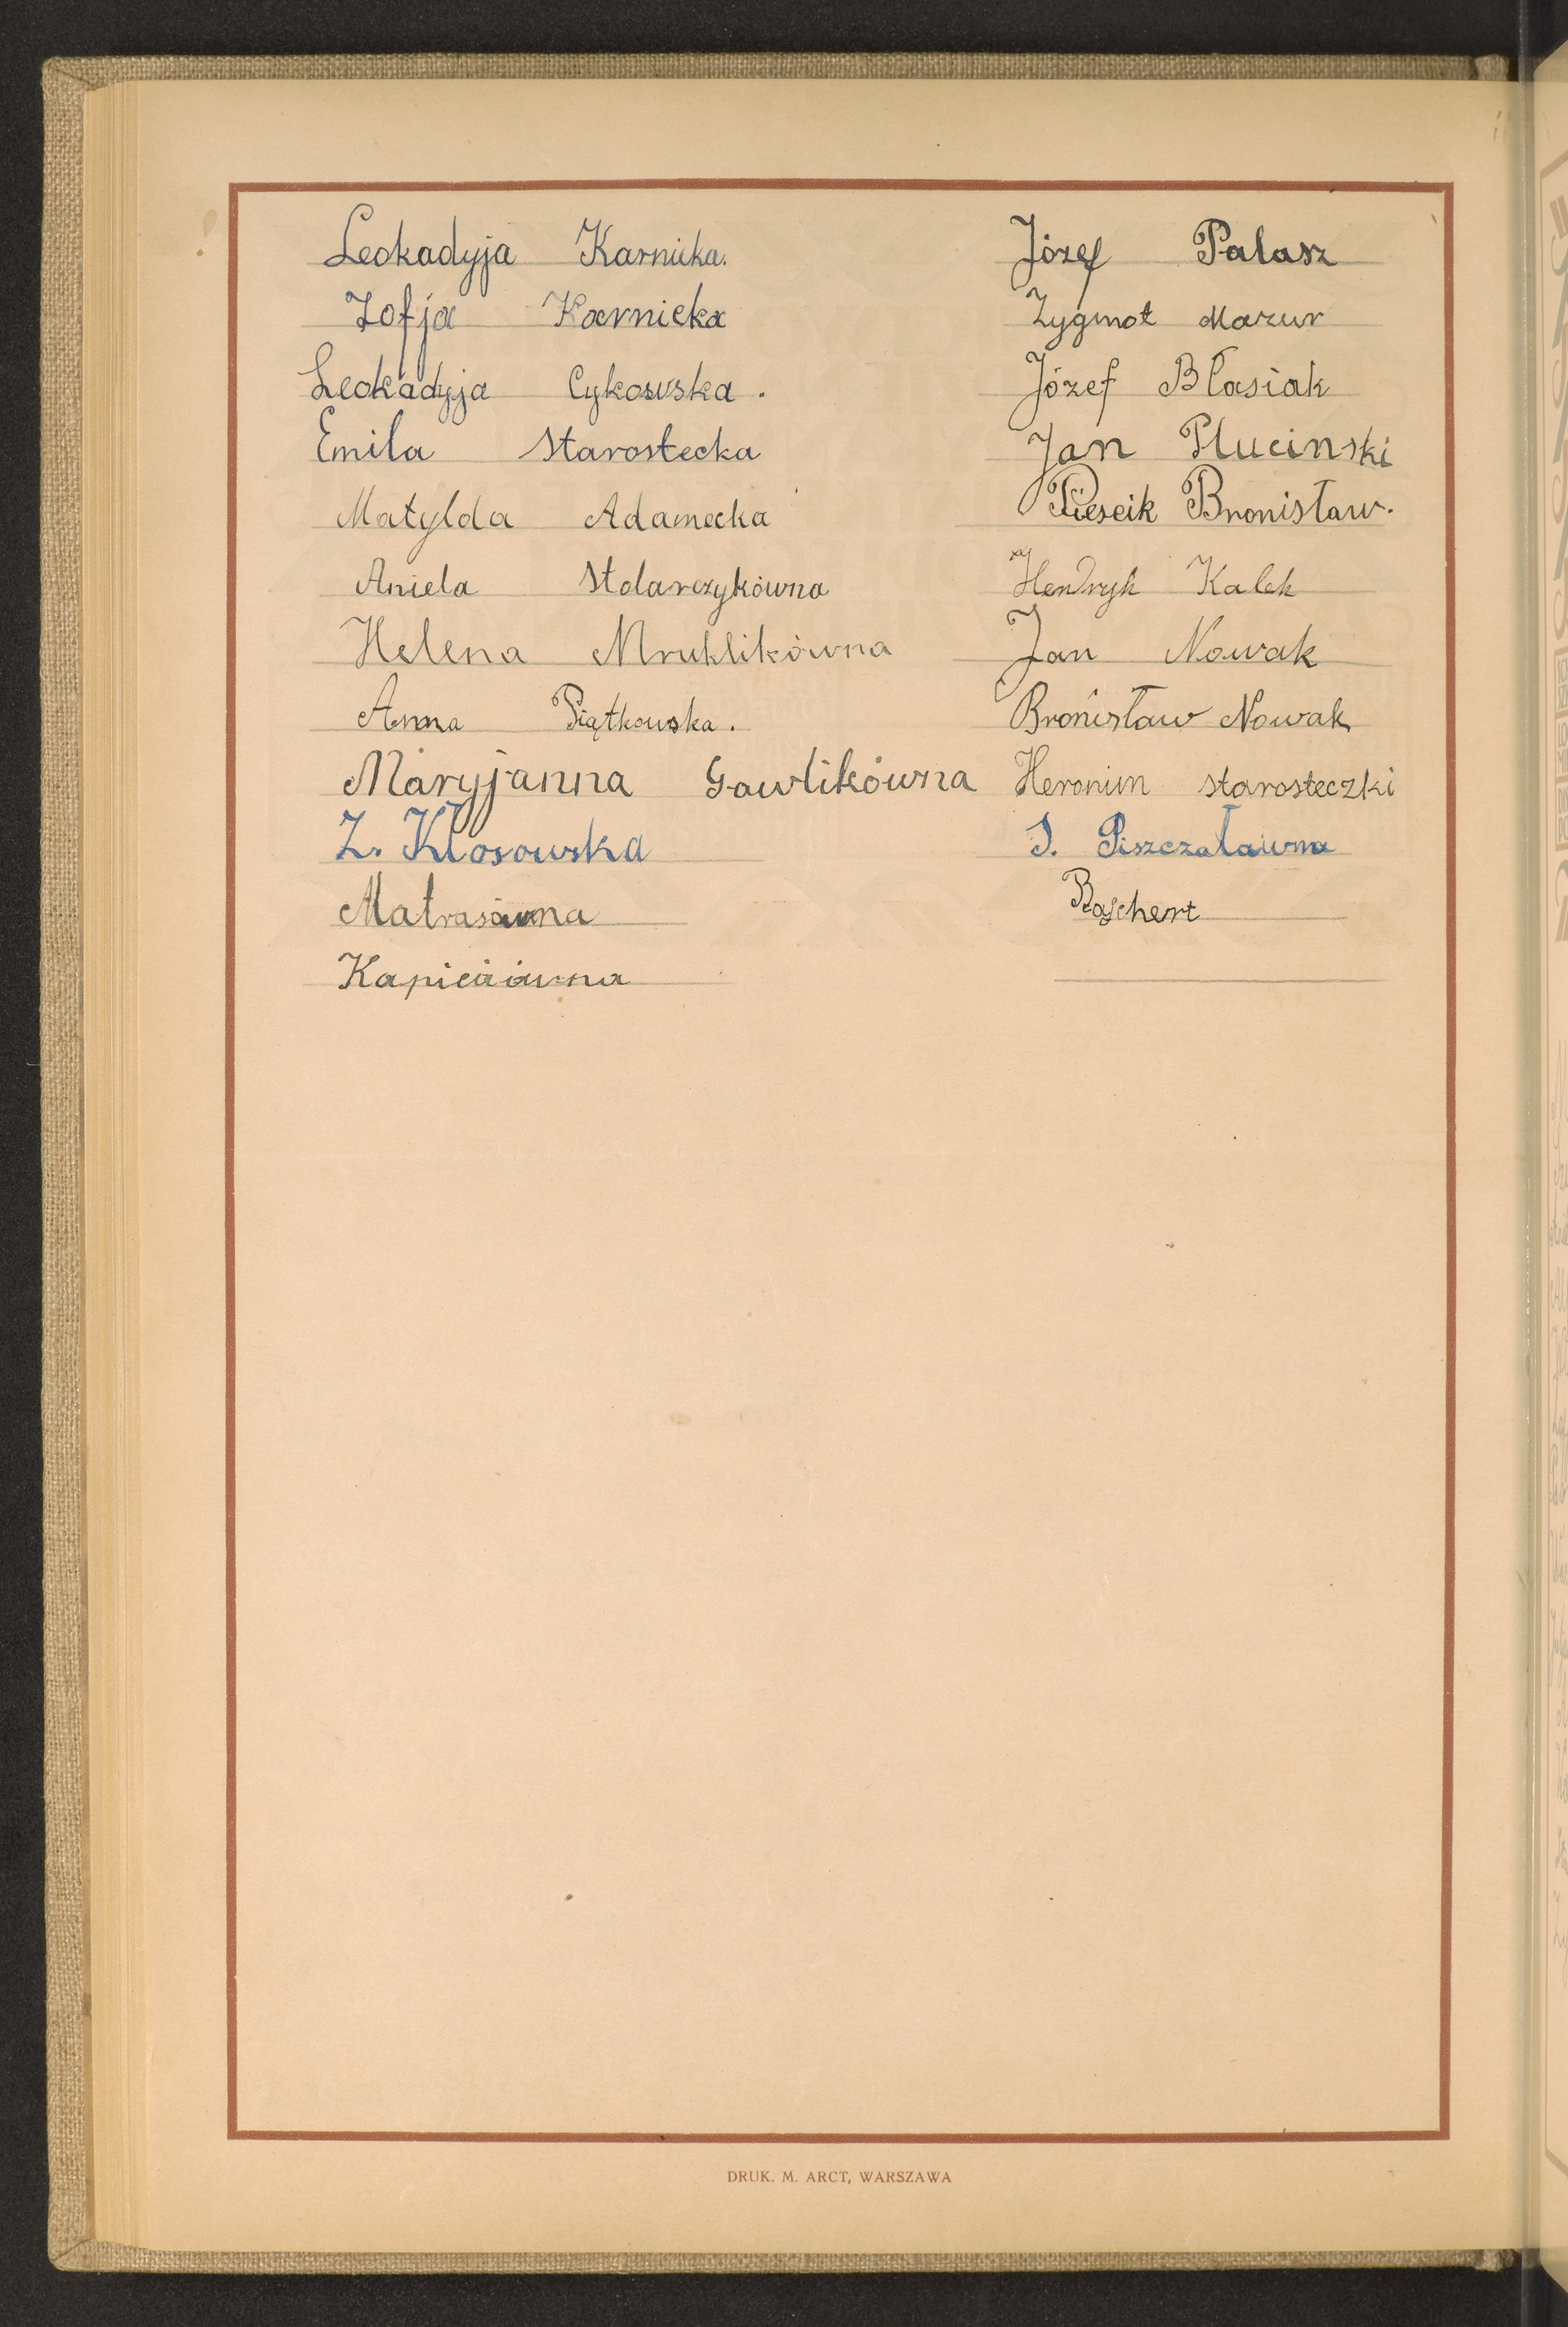 Leokadyja Karnicka.
Zofja Karnicka
Leokadyja Cykowska.
Emila Starostecka
Matylda Adamecka
Aniela Stolarczykówna
Helena Mruklikówna
Anna Piątkowska.
Maryjanna Gawlikówna
Z. Kłosowska
Matrasówna
Józef Palasz
Zygmot Mazur
Józef Błasiak
Jan Plucinski
Piescik Bronisław.
Hendryk Kalek
Jan Nowak
Bronisław Nowak
Heronim starosteczki
J. Piszczałówna
DRUK. M. ARCT, WARSZAWA